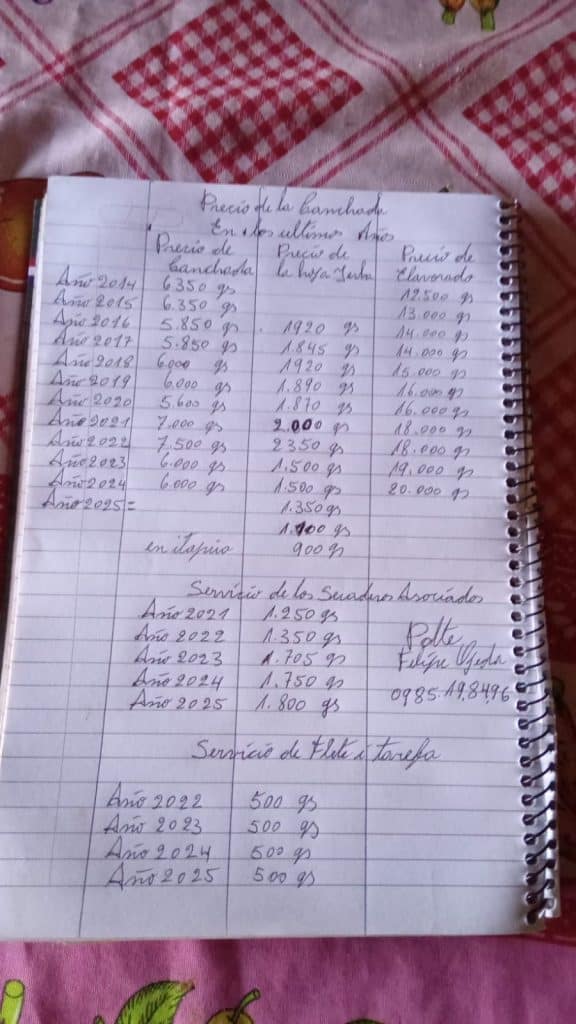 Precio de la Canchada
En los ultimos Años
Precio de Canchada Precio de la hoja Yerba Precio de Elavorado
Año 2014 6350 gs 12.500 gs
Año 2015 6.350 gs 13.000 gs
Año 2016 5.850 gs 1920 gs 14.000 gs
Año 2017 5.850 gs 1.845 gs 14.000 gs
Año 2018 6.000 gs 1920 gs 15.000 gs
Año 2019 6.000 gs 1.890 gs 16.000 gs
Año 2020 5.600 gs 1.870 gs 16.000 gs
Año 2021 7.000 gs 2.000 gs 18.000 gs
Año 2022 7.500 gs 2350 gs 18.000 gs
Año 2023 6.000 gs 1.500 gs 19.000 gs
Año 2024 6.000 gs 1.500 gs 20.000 gs
Año 2025= 1.350 gs
1.100 gs
en itapua 900 gs
Servicio de los Secaderos Asociados
Año 2021 1.250 gs
Año 2022 1.350 gs
Año 2023 1.705 gs
Año 2024 1.750 gs
Año 2025 1.800 gs
Pdte
Felipe Ojeda
0985.198496
Servicio de Flete i tarefa
Año 2022 500 gs
Año 2023 500 gs
Año 2024 500 gs
Año 2025 500 gs